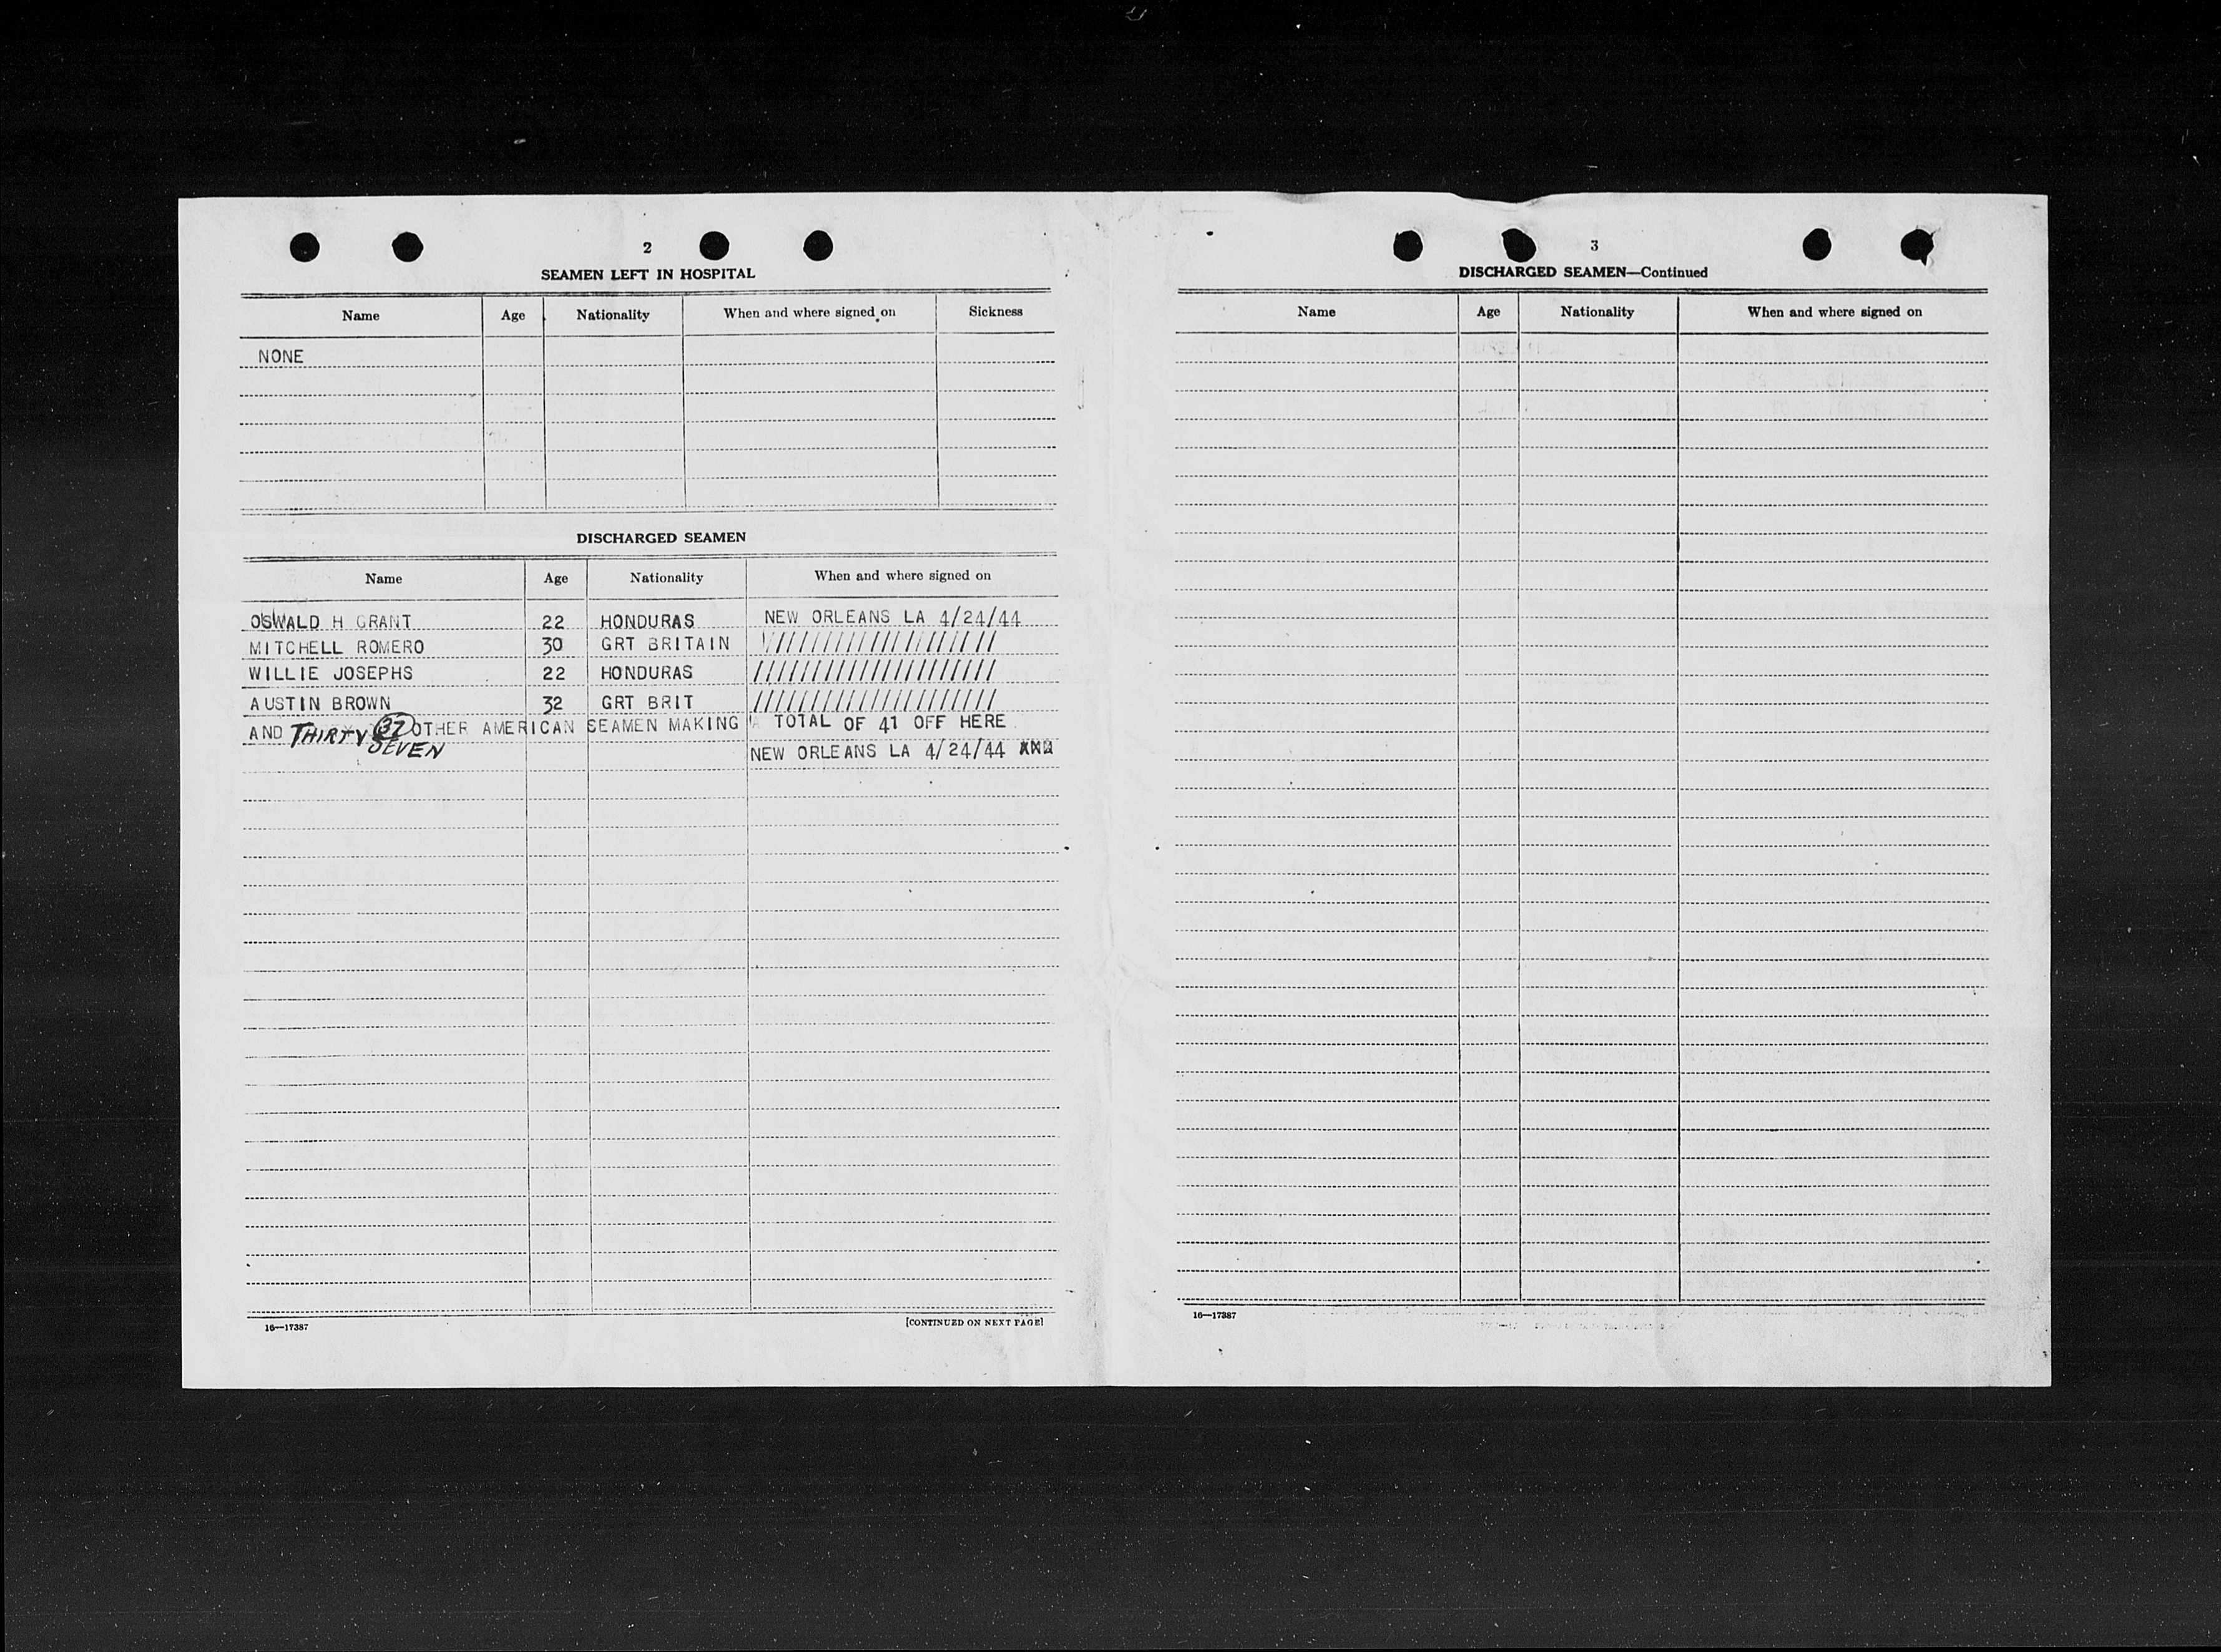 2
SEAMEN LEFT IN HOSPITAL
Name Age Nationality When and where signed on Sickness
NONE
DISCHARGED SEAMEN
Name Age Nationality When and where signed on
OSWALD H GRANT 22 HONDURAS NEW ORLEANS LA 4/24/44
MITCHELL ROMERO 30 GRT BRITAIN ////////////////////
WILLIE JOSEPHS 22 HONDURAS /////////////////////
AUSTIN BROWN 32 GRT BRIT /////////////////////
AND THIRTY 37 OTHER AMERICAN SEAMEN MAKING A TOTAL OF 41 OFF HERE
SEVEN
NEW ORLEANS LA 4/24/44
16—17387
[CONTINUED ON NEXT PAGE]
3
DISCHARGED SEAMEN—Continued
Name Age Nationality When and where signed on
16—17387